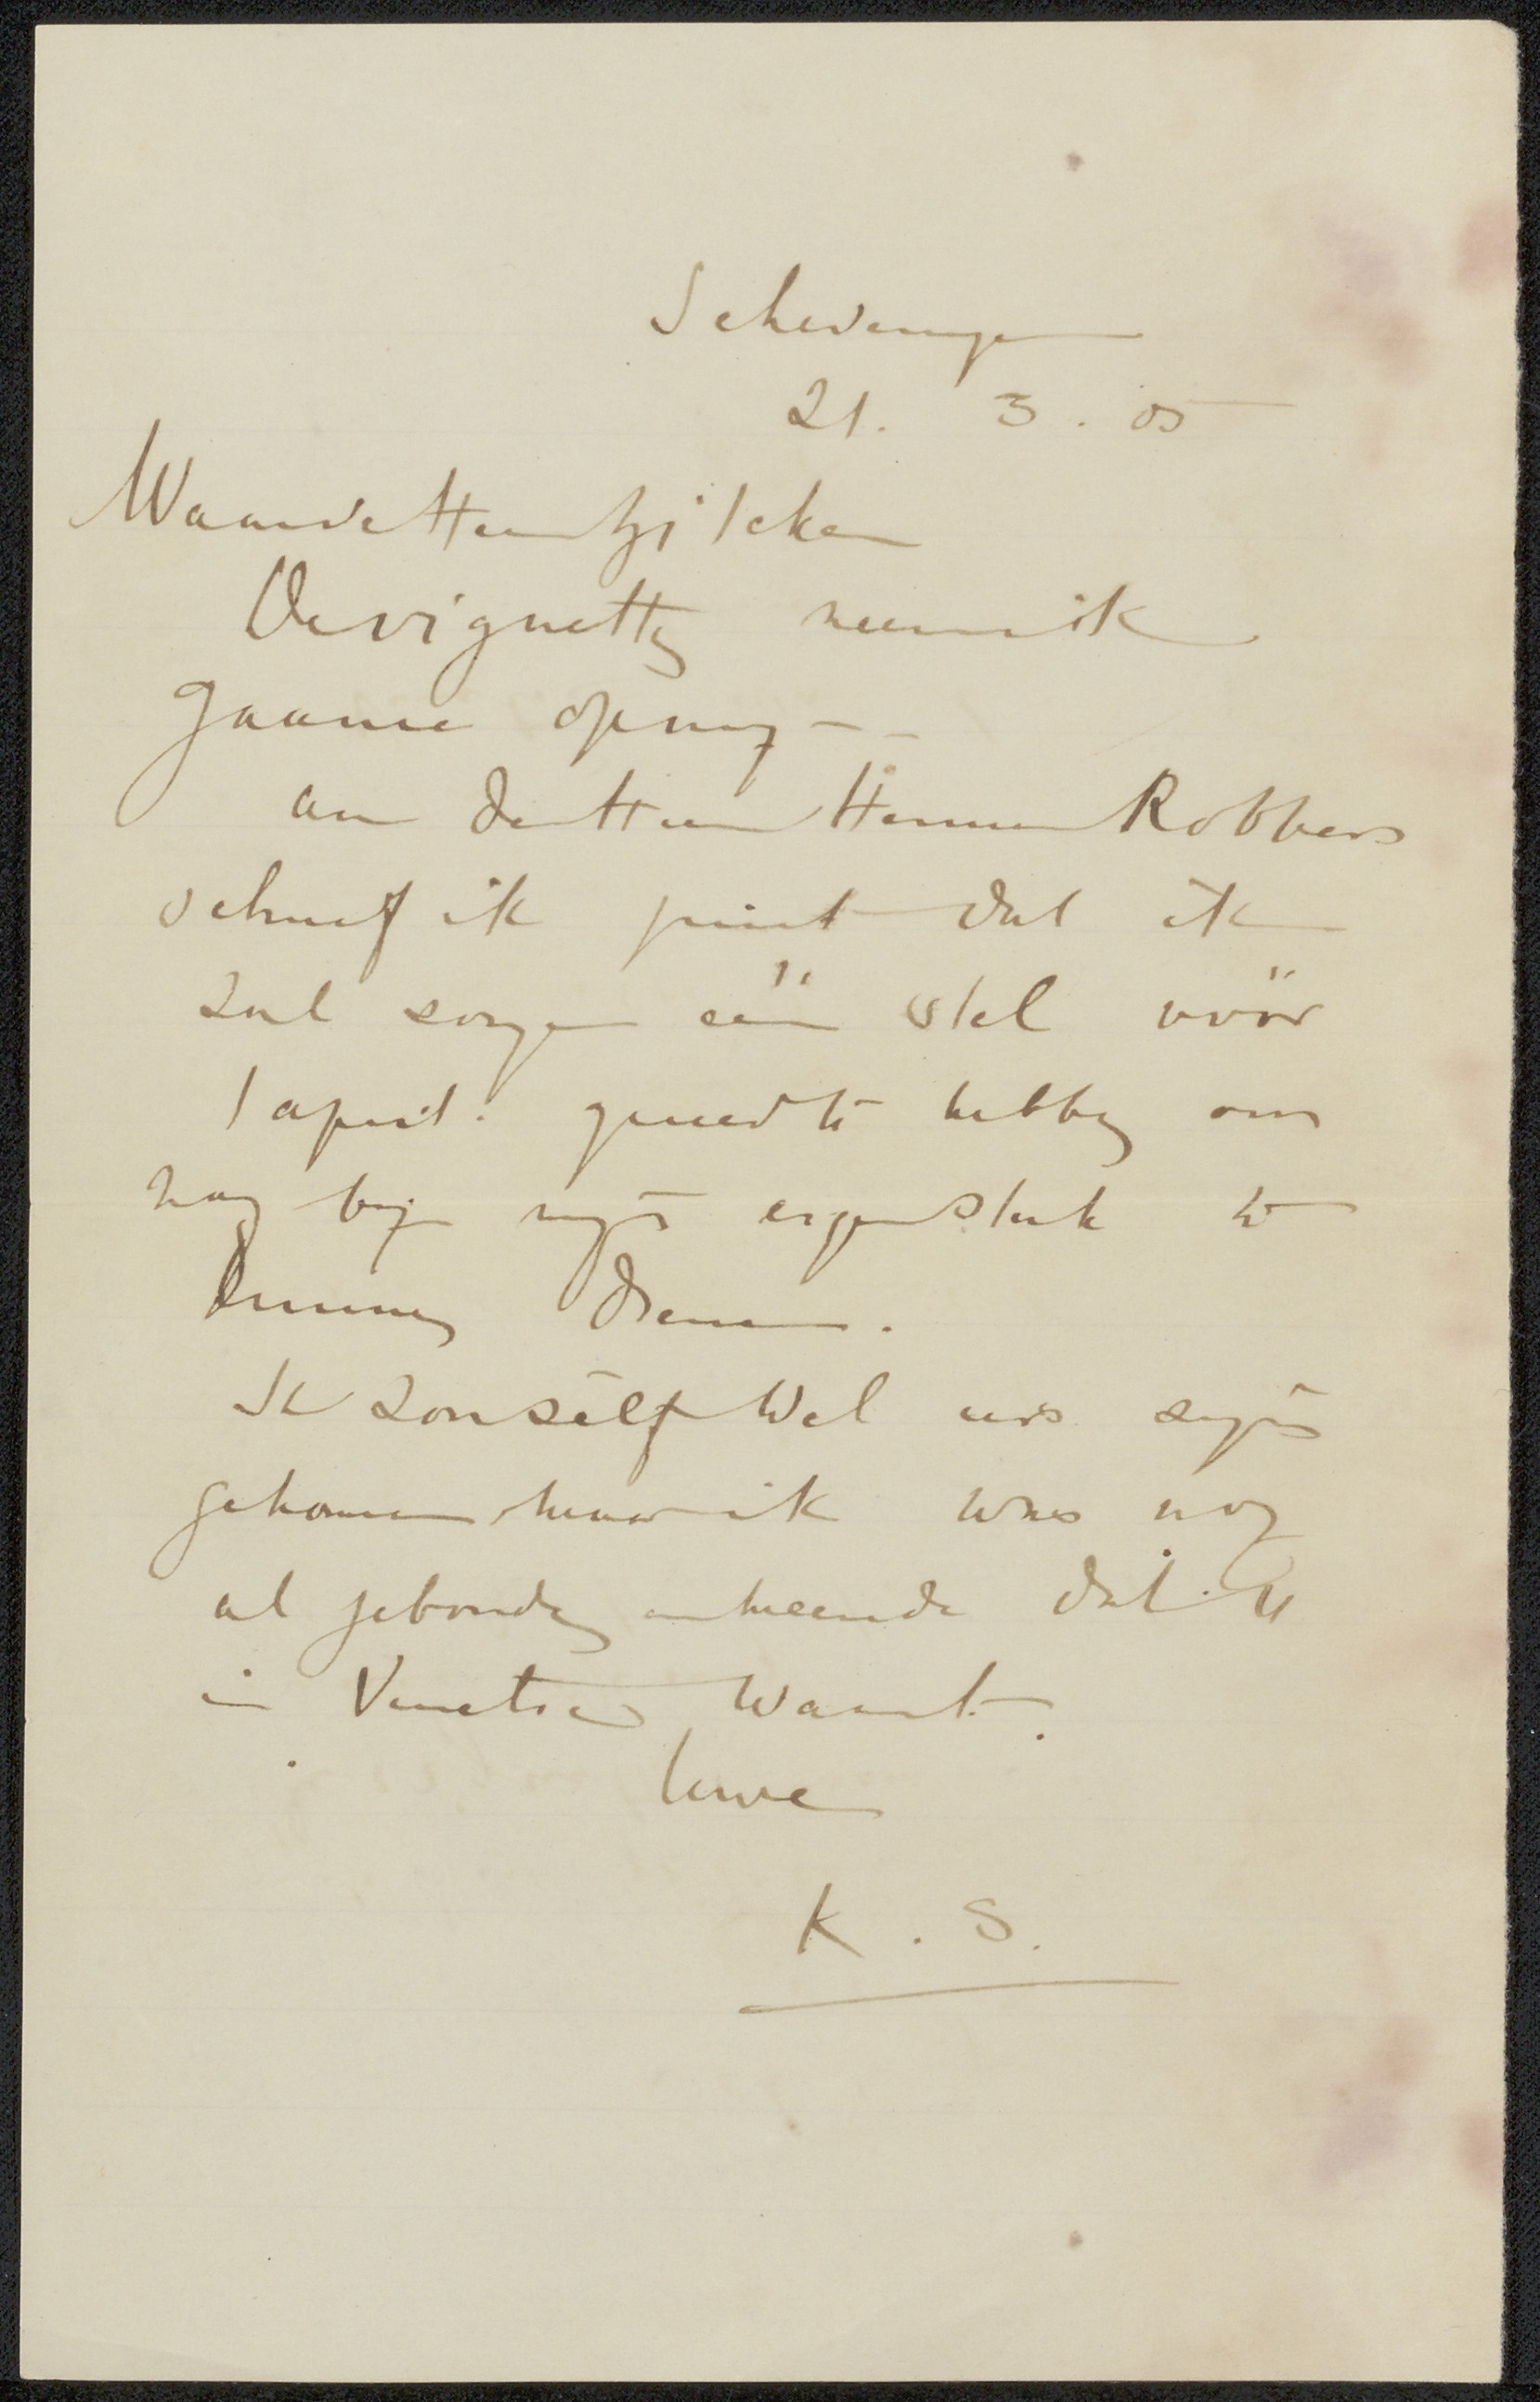 Scheveningen
21. 3. 05
Waarde Heer Zilcken
De vignetten neem ik
gaarne op mij
aan den Heer Herman Robbers
schreef ik juist dat ik
zal zorgen één stel vóór
1 april gereed te hebben om
nog bij mijn eigen stuk te
kunnen dienen.
Ik zou zelf wel eens zijn
gekomen maar ik was nog
al gebonden en meende dat U
in Venetie waart.
Uwe
K. S.